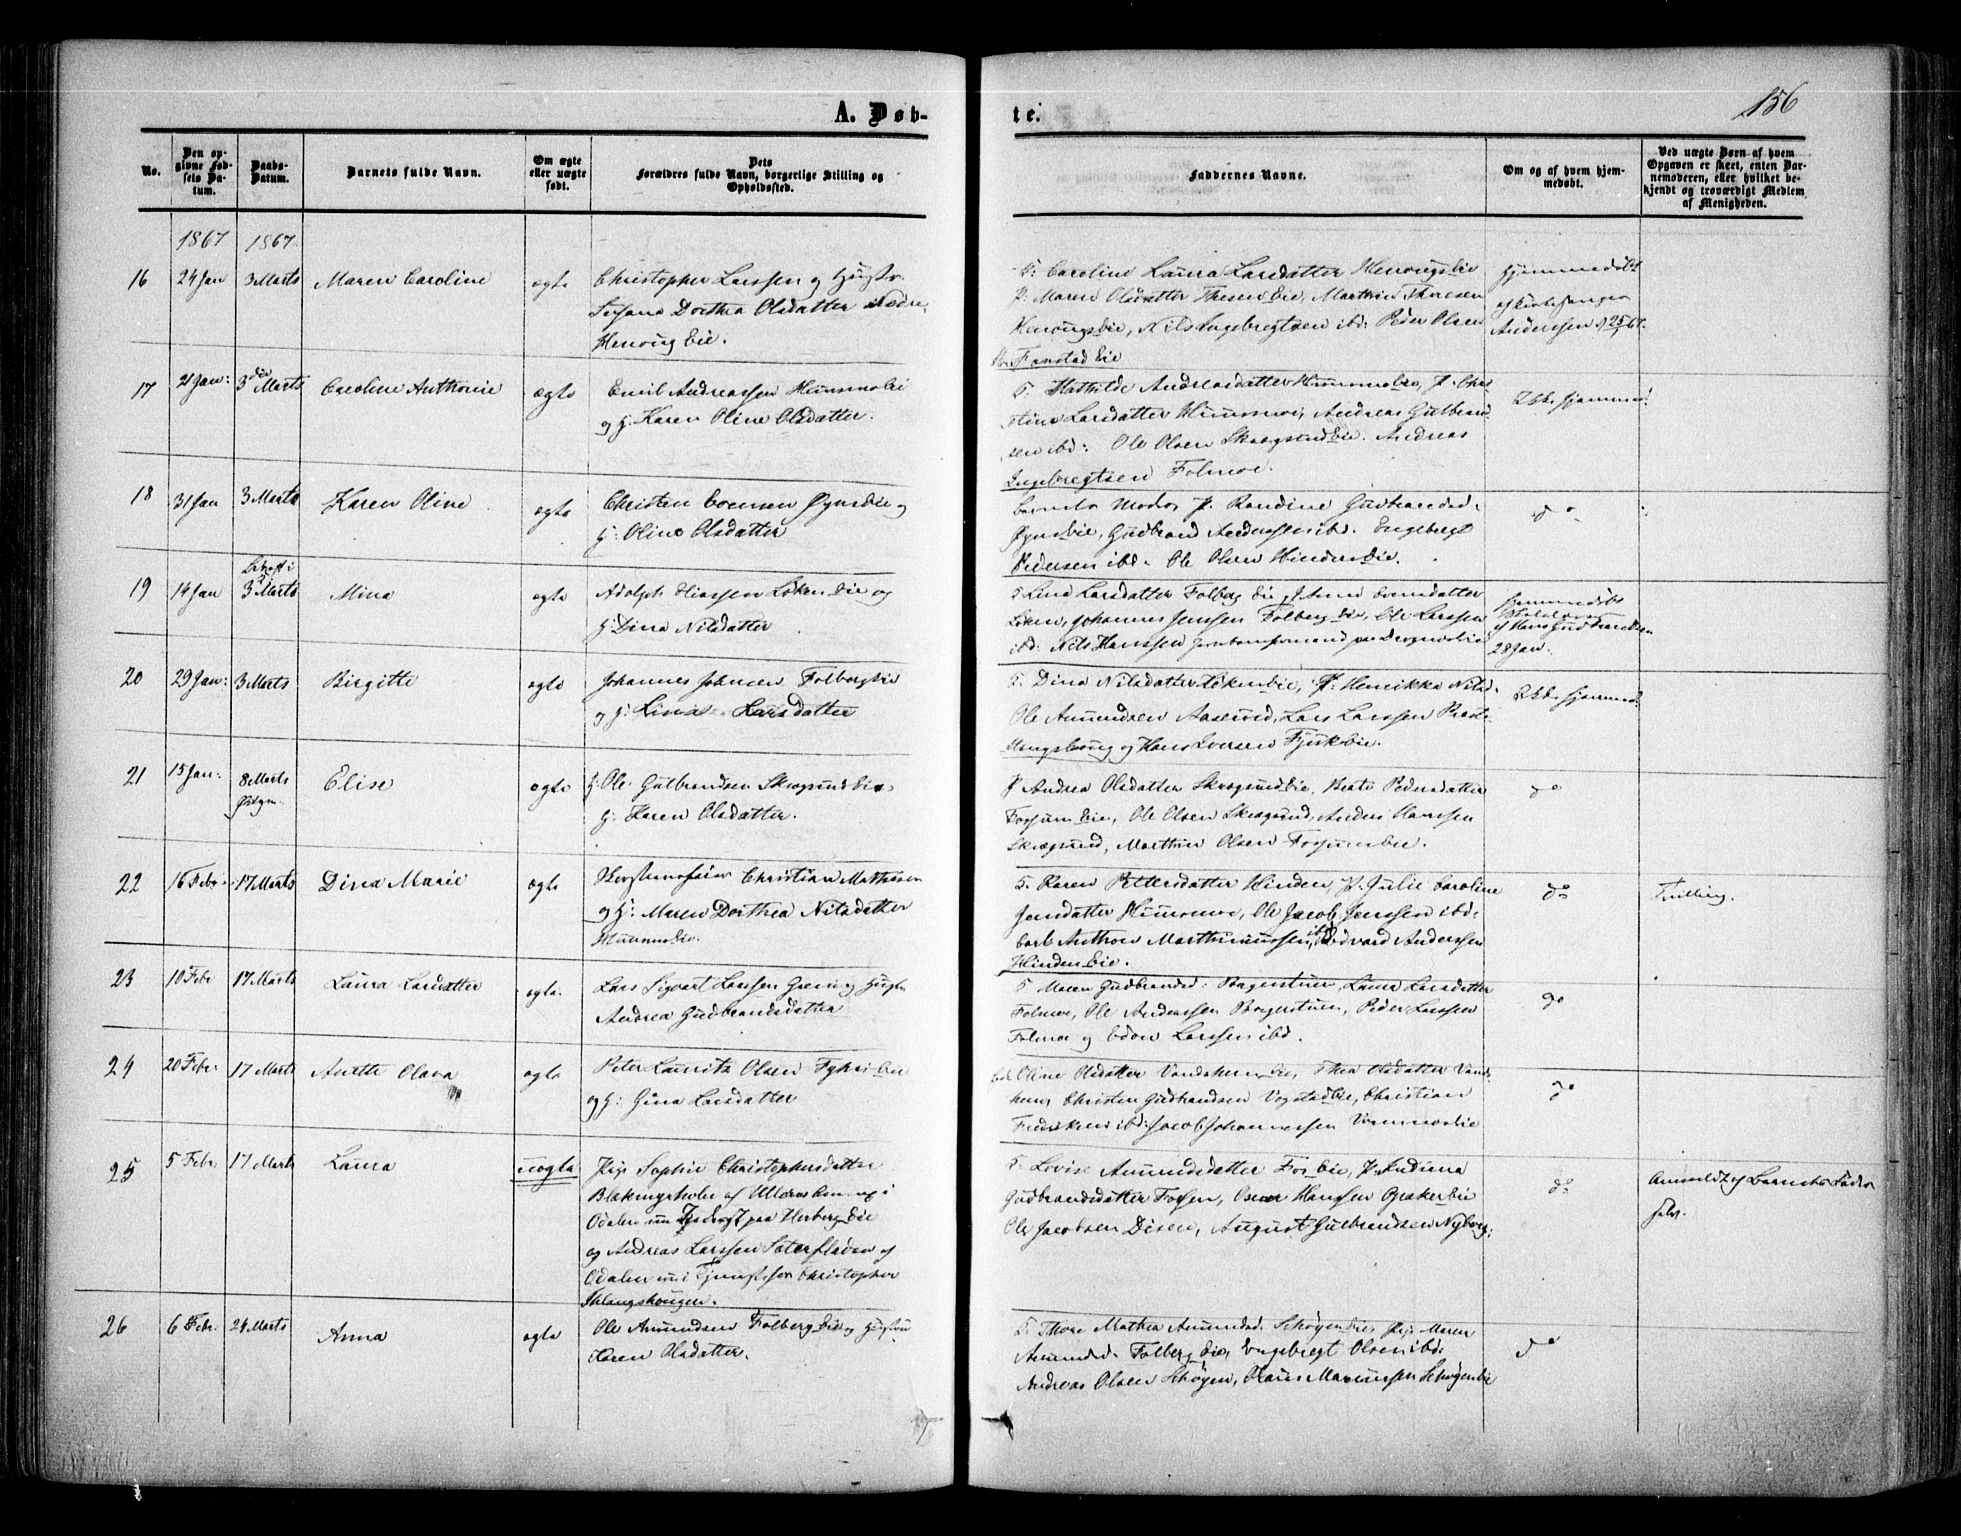 A. Døb-
te.
156
No.
Den op-
givne Fød-
sels Da-
tum.
Daabs-
Datum.
Barnets fulde Navn.
Om ægte
eller uægte
født.
Dets
Forældres fulde Navn, borgerlige Stilling og
Opholdssted.
Faddernes Navne.
Om og af hvem hjem-
medøbt.
Ved uægte Børn af hvem
Opgaven er skeet, enten Bar-
nemoderen, eller hvilket be-
kjendt og troværdigt Medlem
af Menigheden.
1867 1867
16 24 Jan 3 Marts Maren Caroline ægte
Christopher Larssen og Hustr.
Dorthea Olsdatter
Henoug Eie.
F: Caroline Laura Larsdatter Henougseie
P: Maren Olsdatter Thesen Eie, Marthin Thoresen
Henougseie, Nils Ingebregtsen ibd: Peder Olsen
Fonstad Eie
Hjemmedøbt
af Kirkesanger
Anderssen
17 21 Jan: 3 Marts Caroline Anthonie ægte
Emil Andreassen Huusmoei
og H. Karen Oline Olsdatter.
F. Mathilde Andreasdatter P. Chri-
stine Larsdatter Andreas Gulbrand-
sen ibd: Ole Olsen Skragsrud Eie. Andreas
Ingebregtsen Folmoe.
Ikke hjemmed:
18 31 Jan 3 Marts Karen Oline ægte
Christen Evensen og
H: Oline Olsdatter
Barnets Moder P. Randine Gudbrandsd.
Gudbrand Anderssen ibd. Engebregt
Pedersen ibd. Ole Olsen Hinden Eie.
do
19 14 Jan 3 Marts Mina ægte
Adolph Hanssen Løken Eie og
H: Dina Nilsdatter
F. Lina Larsdatter Folberg Eie, P. Anne Evensdatter
Løken, Johannes Jenssen Folberg Eie, Ole Larssen
ibd: Nils Hanssen
Hjemmedøbt
af Hans Gudbrandsen
28 Jan:
20 29 Jan: 3 Marts Birgitte ægte
Johannes Johnsen Folbergeie
og H: Lina Larsdatter
F. Dina Nilsdatter Løkeneie, P: Henrikka Nilsd.
Ole Amundsen Aaserud, Lars Larssen
og Hans Iversen
Ikke hjemmed.
21 15 Jan: 8 Marts Elise ægte
Ole Gulbrandsen Skragsrud Eie
H: Karen Olsdatter.
P Andrea Olsdatter Skragsrudeie, Berte Pedersdatter
Fossum Eie, Ole Olsen Skragsrud, Anders Hanssen
Skragsrud, Marthin Olsen Fossumeie.
do
22 16 Febr. 17 Marts Dina Marie ægte
Christian Mathisen
og H: Maren Dorthea Nilsdatter
F. Karen Pettersdatter Hinden, P. Julie Caroline
Jensdatter Ole Jacob Jenssen ibd:
Carl Anthon Marthinussen, ibd Edvard Anderssen
Hinden Eie.
do
Tvilling.
23 10 Febr 17 Marts Laura Larsdatter ægte.
Lars Sigvart Larssen og Hustr
Andrea Gudbrandsdatter
F Maren Gudbrandsd: Laura Larsdatter
Folmoe, Ole Anderssen Peder Larssen
Folmoe og Edon Larssen ibd.
do
24 20 Febr. 17 Marts Anette Olava ægte
Peter Lauritz Olsen
og H: Gina Larsdatter
Oline Olsdatter Vandshem Eie, Thea Olsdatter Vands-
hem, Christen Gudbrandsen Vogstad Eie, Christian
Fredriksen ibd: Jacob Johannessen
do
25 5 Febr. 17 Marts Laura uægte
Pige Sophie Christophersdatter
af Ullern
Odalen nu paa Herberg Eie
og Andreas Larssen Sæterfladen af
Odalen nu i Tjeneste hos Christopher
Slangshougen.
F. Lovise Amundsdatter Fos Eie, P. Indiana
Gudbrandsdatter Fossen, Oscar Hanssen Græker Eie
Ole Jacobsen Disen, August Gulbrandsen Nyborg.
do
Anmeldt af Barnets Fader
selv.
26 6 Febr. 24 Marts Anna ægte
Ole Amundsen Folberg Eie og Hustru
Karen Olsdatter.
F. Thore Mathea Amundsd. Pige Maren
Amundsd. Folberg Eie, Engebregt Olsen ibd:
Andreas Olsen Skøyen, Hans Mariussen Skøyeneie
do